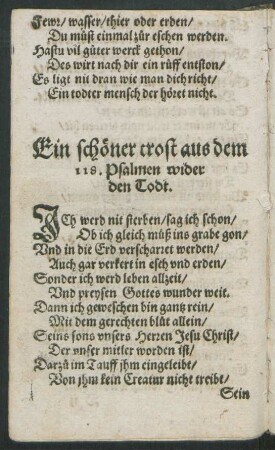 Fewr/ wasser/ thier oder erden/
Du müst einmal zůr eschen werden.
Hastu vil gůter werck gethon/
Des wirt nach dir ein rüff entston/
Es ligt nit dran wie man dich richt/
Ein todter mensch der höret nicht.
Ein schöner trost aus dem
118. Psalmen wider
den Todt.
ICh werd nit sterben/ sag ich schon/
Ob ich gleich můß ins grabe gon/
Vnd in die Erd verscharret werden/
Auch gar verkert in esch vnd erden/
Sonder ich werd leben allzeit/
Vnd preysen Gottes wunder weit.
Dann ich geweschen bin gantz rein/
Mit dem gerechten blůt allein/
Seins sons vnsers Herren Jesu Christ/
Der vnser mitler worden ist/
Darzů im Tauff jhm eingeleibt/
Von jhm kein Creatur nicht treibt/
Sein